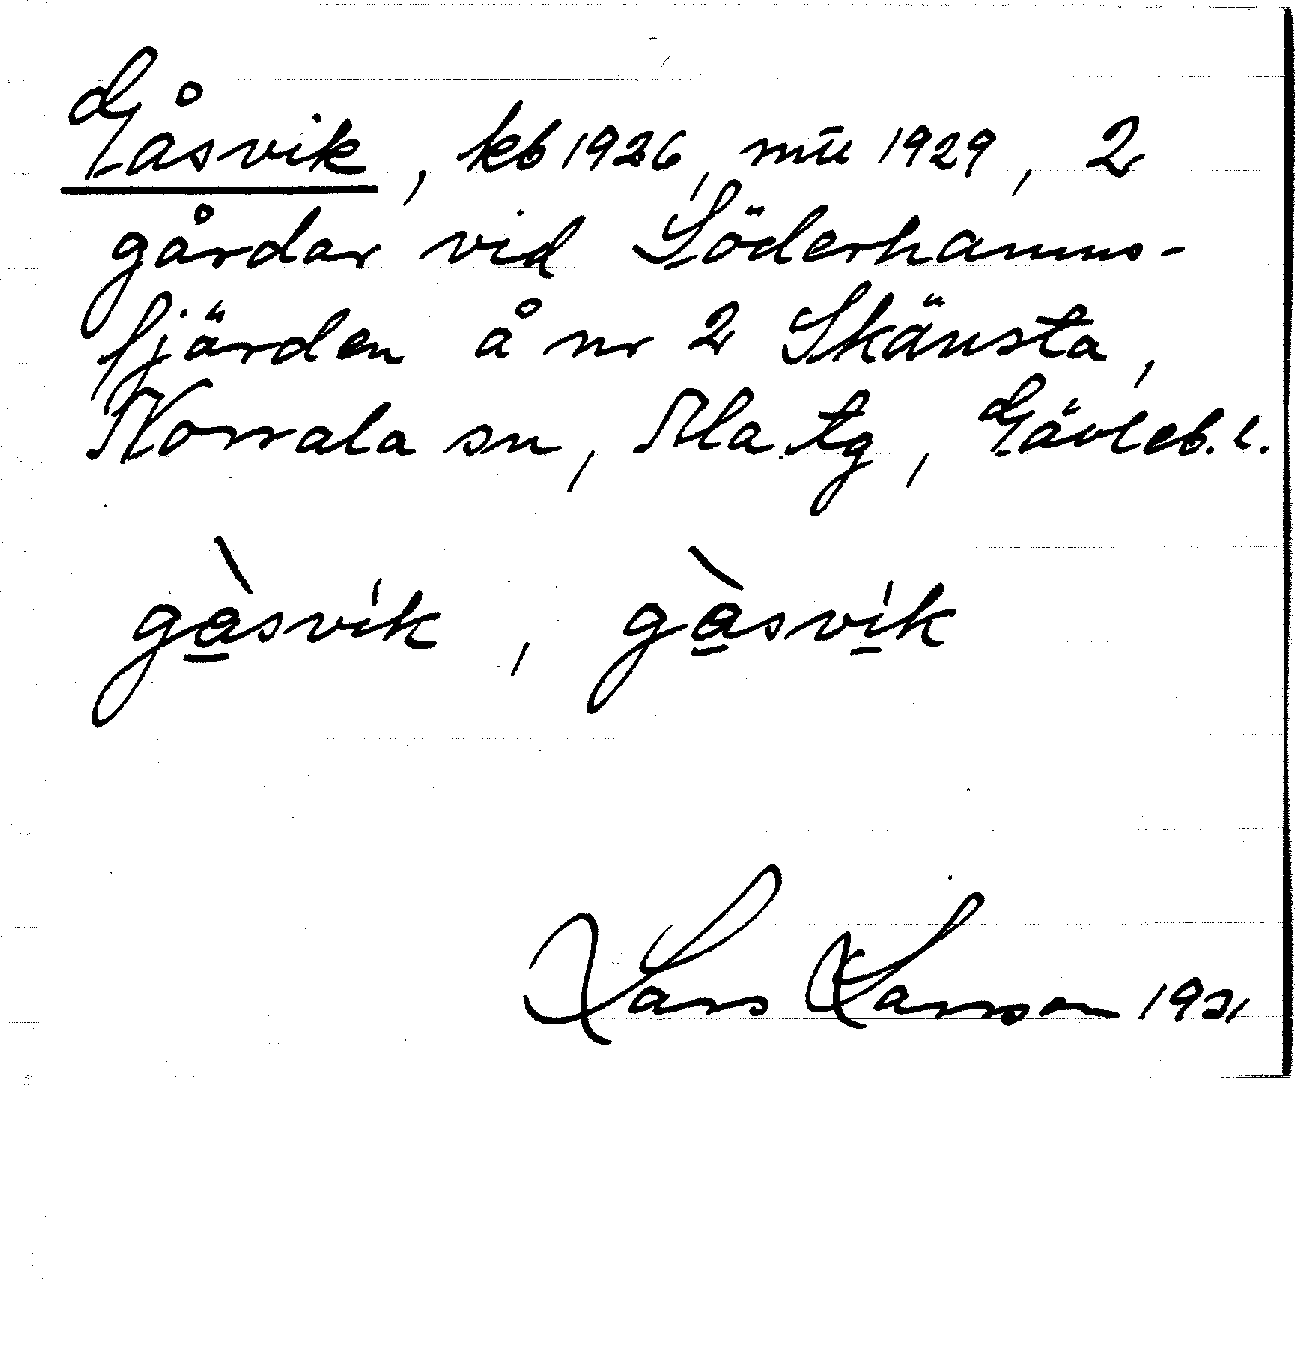 Gåsvik, kb 1926, mū 1929, 2
gårdar vid Söderhamns-
fjärden å nr 2 Skänsta,
Norrala sn, Ala tg, Gävleb. l.
gàsvik, gàsvik
Lars Larsson 1931